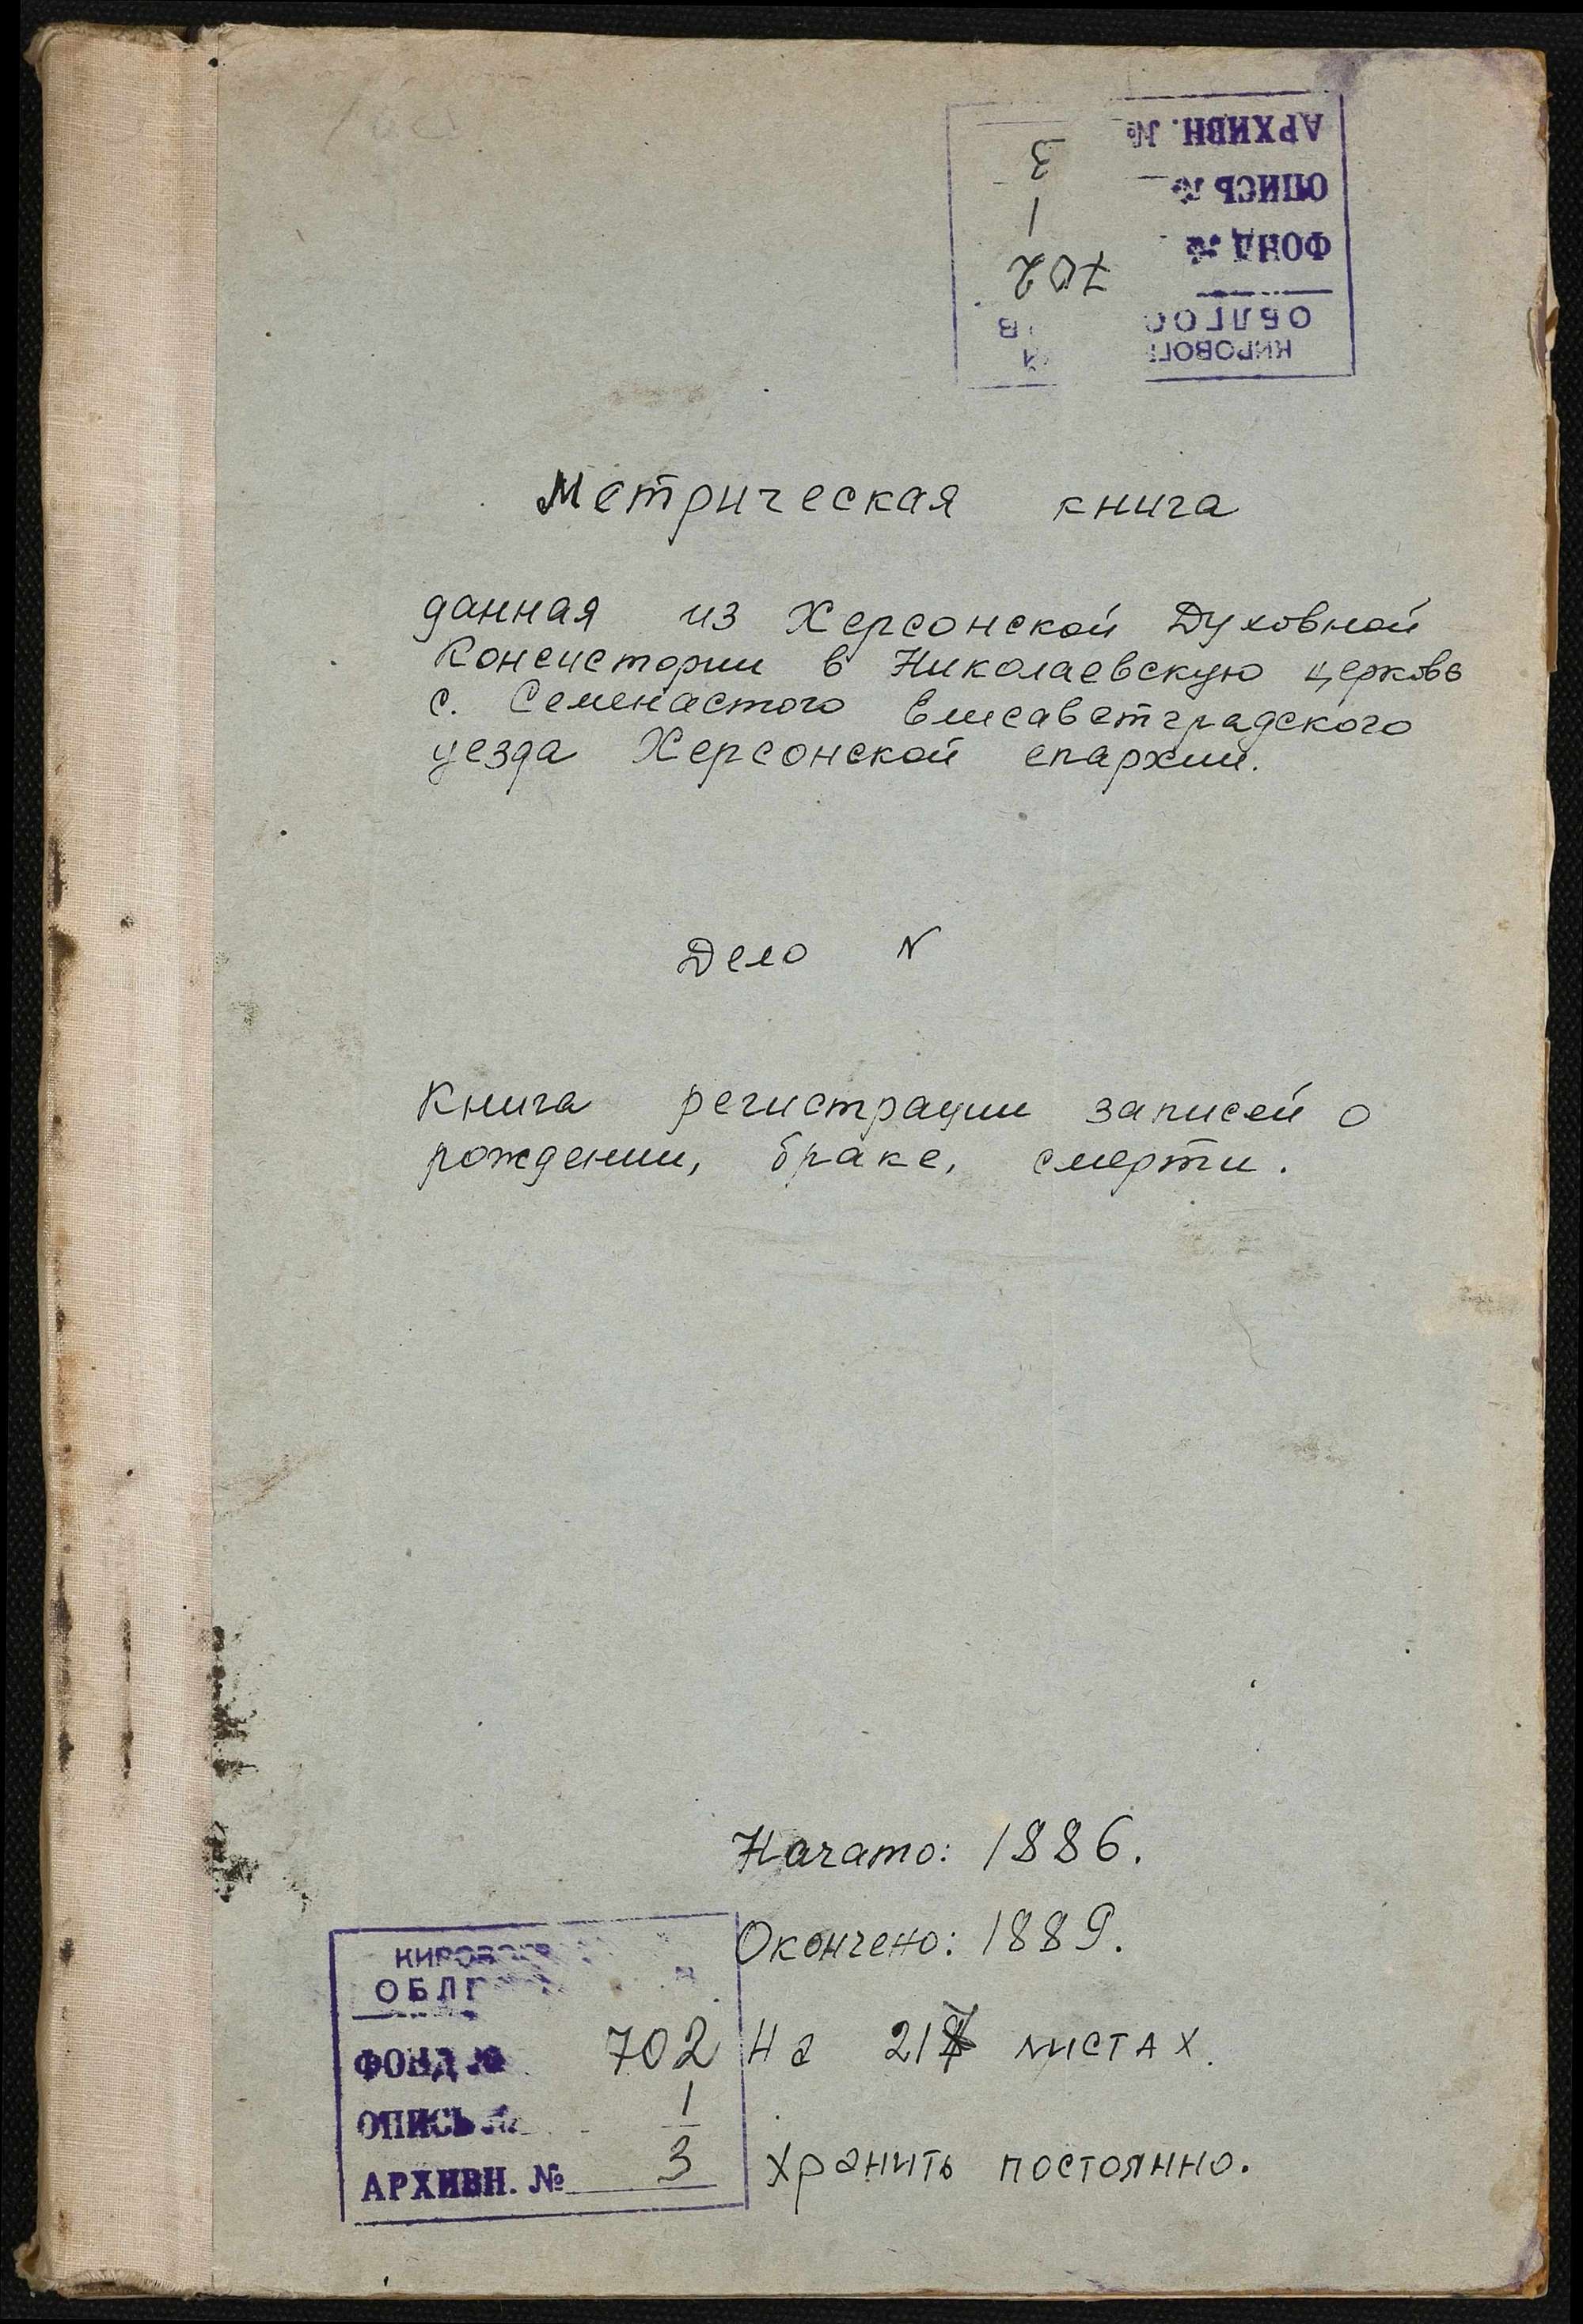 АРХИВН. № 3
ОПИСЬ № 1
ФОНД № 702
ОБЛГОС
КИРОВОГ
Метрическая книга
данная из Херсонской Духовной
Консистории в Николаевскую церковь
с. Семенастого Елисаветградского
уезда Херсонской епархии.
Дело N
Книга регистрации записей о
рождении, браке, смерти.
Начато: 1886.
Окончено: 1889.
КИРОВОГР
ОБЛГ
ФОНД № 702
На 217 листах.
ОПИСЬ № 1
АРХИВН. № 3
Хранить постоянно.